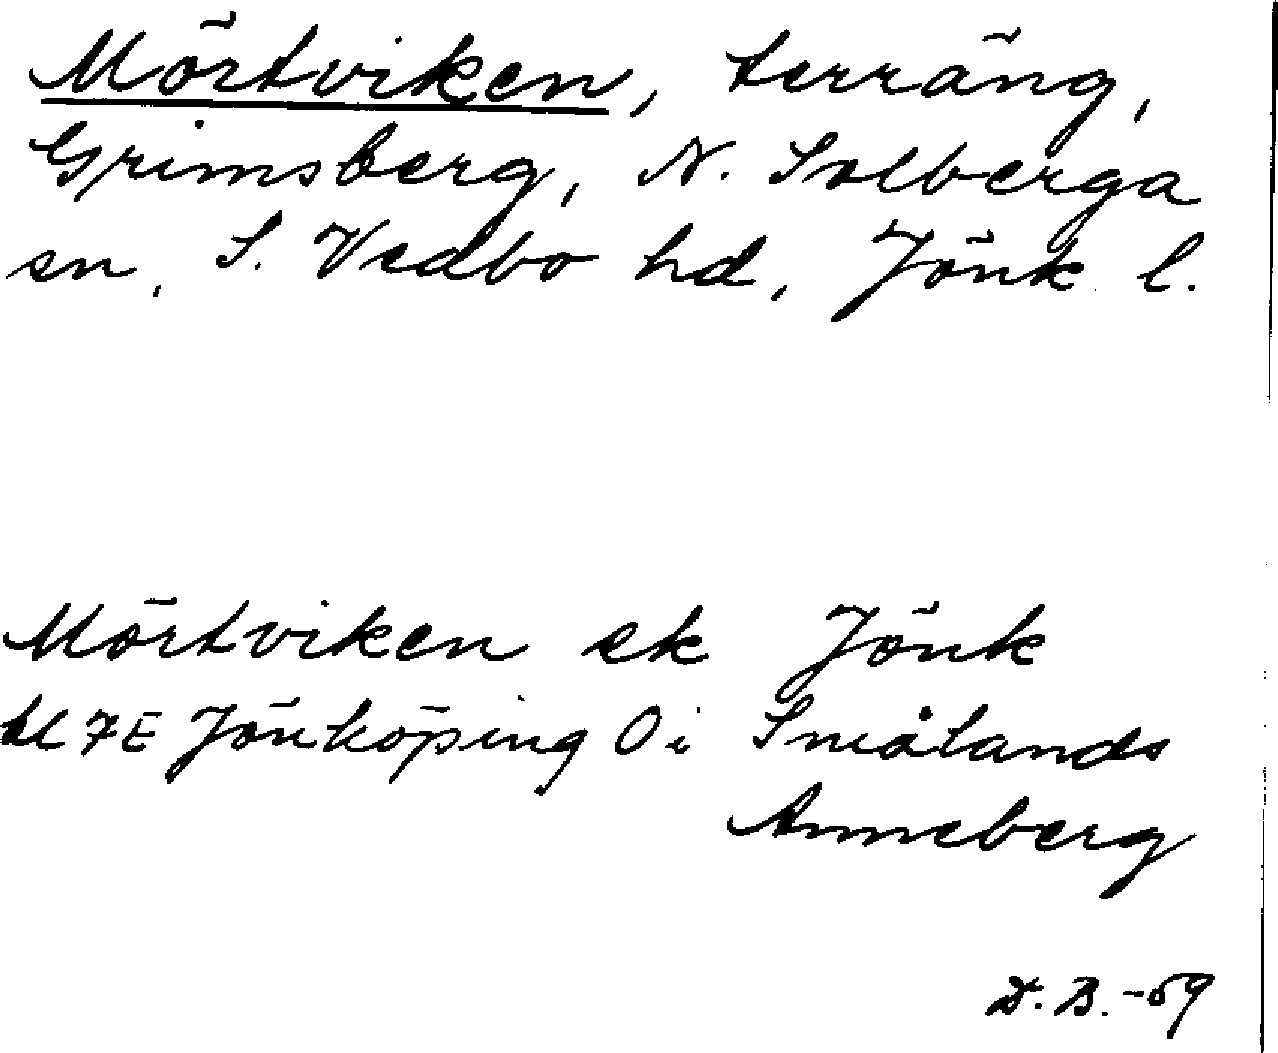 Mörtviken, terräng,
Grimsberg, N. Solberga
sn, S. Vedbo hd, Jönk l.
Mörtviken ek Jönk
bl 7E Jönköping Oi Smålands
Anneberg
D. B. -69